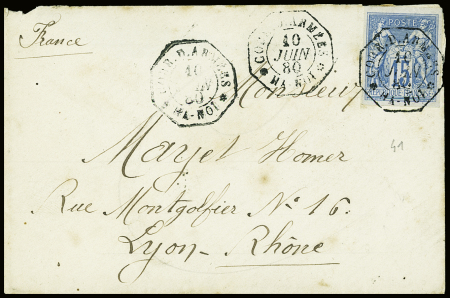 France
COR.D.ARMÉES
10
JUIN
80
HA-NOI
COR.D.ARMÉES
10
JUIN
80
HA-NOI
COR.D.ARMÉES
10
HA-NOI
POSTE
15
Monsieur
Mazet Homer
Rue Montgolfier No 16.
Lyon - Rhône